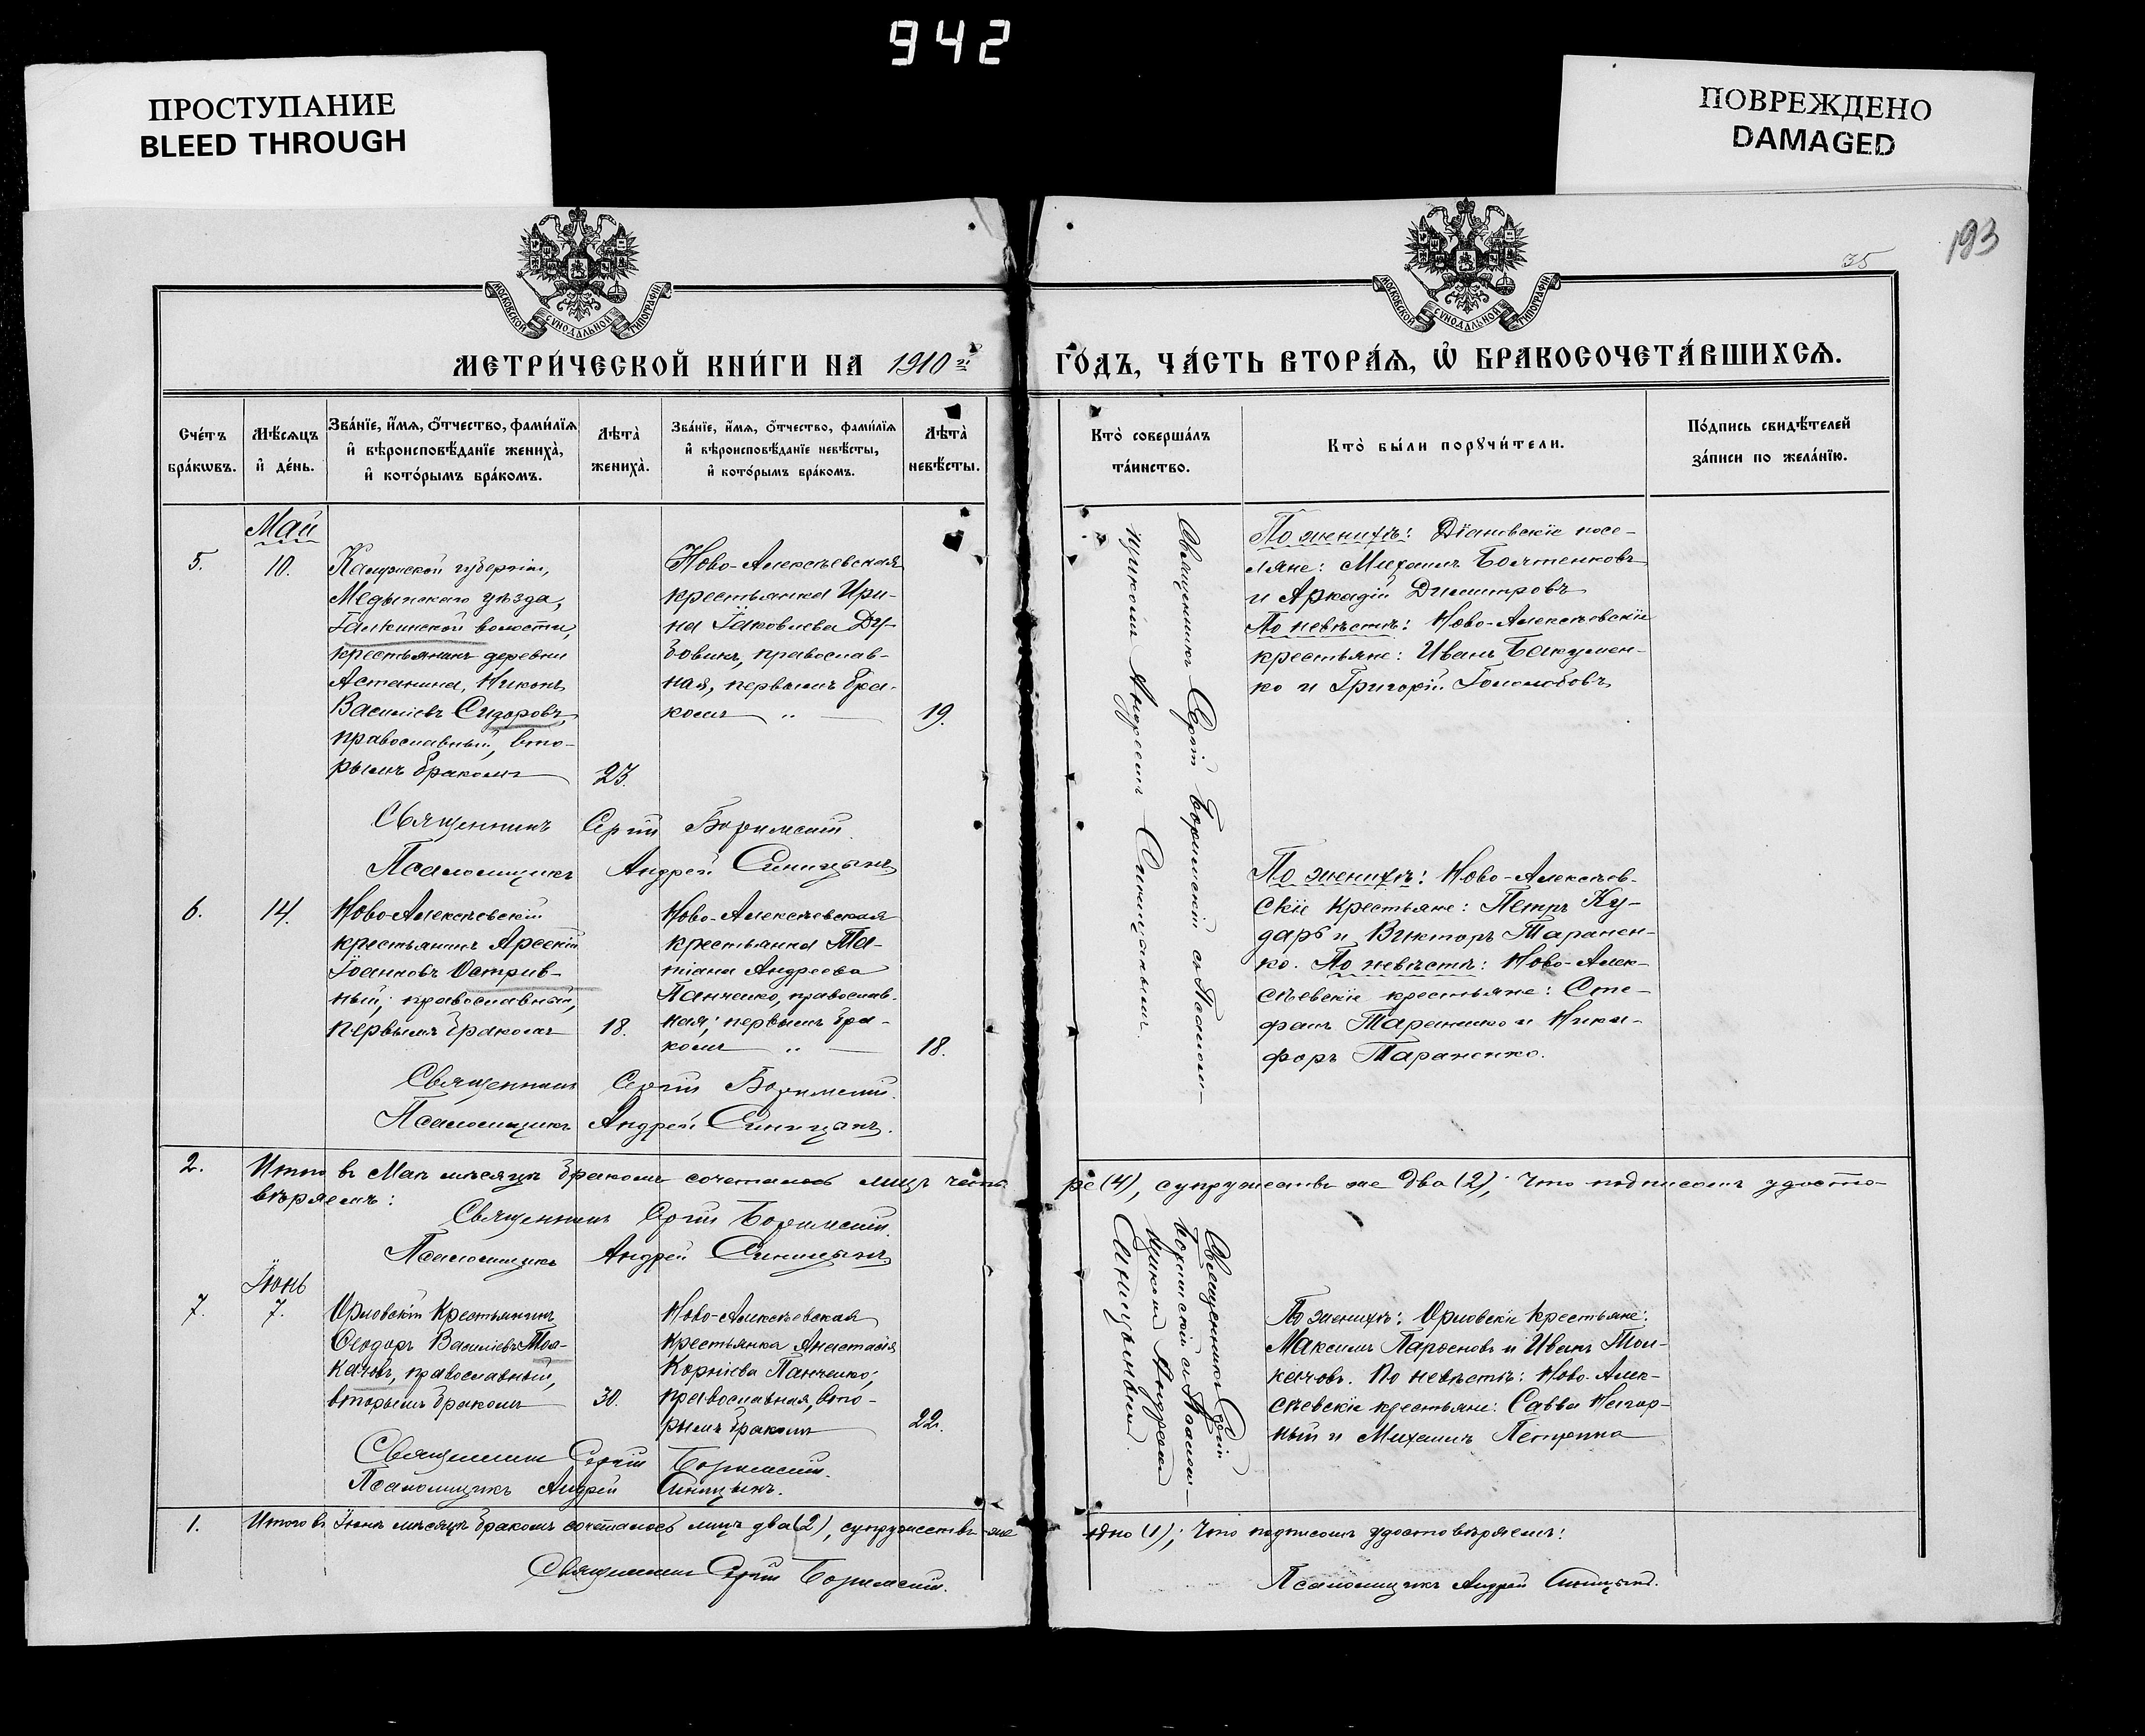 942
ПРОСТУПАНИЕ
BLEED THROUGH
ПОВРЕЖДЕНО
DAMAGED
193
35
МОСКОВСКОЙ СѴНОДАЛЬНОЙ ТИПОГРАФІИ
МОСКОВСКОЙ СѴНОДАЛЬНОЙ ТИПОГРАФІИ
МЕТРИ́ЧЕСКОЙ КНИ́ГИ НА 1910 й
ГО́ДЪ, ЧА́СТЬ ВТОРА́Ѧ, Ѡ҆ БРАКОСОЧЕТА́ВШИХСѦ.
Сче́тъ
бра́кѡвъ.
Мѣ́сѧцъ
и҆ де́нь.
Зва́нїе, и҆́мѧ, ѻ҆́тчество, фами́лїѧ
и҆ вѣроисповѣ́данїе жениха̀,
и҆ кото́рымъ бра́комъ.
Лѣта̀
жениха̀.
Зва́нїе, и҆́мѧ, ѻ҆́тчество, фами́лїѧ
и҆ вѣроисповѣ́данїе невѣ́сты,
и҆ кото́рымъ бра́комъ.
Лѣта̀
невѣ́сты.
Кто̀ соверша́лъ
та́инство.
Кто̀ бы́ли порꙋчи́тели.
По́дпись свидѣ́телей
за́писи по жела́нїю.
Май
5.
10.
Калужской губерніи,
Медынскаго уѣзда,
Галкинской волости,
крестьянинъ деревни
Астанина, Никонъ
Василіевъ Сидоровъ,
православный, вто-
рымъ бракомъ
23.
Ново-Алексѣевская
крестьянка Ири-
на Іаковлева Ду-
бовикъ, православ-
ная, первымъ бра-
комъ „ —
19.
Священникъ Сергій Боримскій съ Псалом-
щикомъ Андреемъ Синицынымъ.
По женихѣ: Діановскіе посе-
ляне: Михаилъ Болтенковъ
и Аркадій Димитровъ
По невѣстѣ: Ново-Алексѣевскіе
крестьяне: Иванъ Бакумен-
ко и Григорій Голомбовъ
Священникъ Сергій Боримскій.
Псаломщикъ Андрей Синицынъ
6.
14.
Ново-Алексѣевскій
крестьянинъ Арсеній
Іоанновъ Острив-
ный, православный,
первымъ бракомъ
18.
Ново-Алексѣевская
крестьянка Та-
тіана Андреева
Панченко, православ-
ная; первымъ бра-
комъ „ —
18.
По женихѣ: Ново-Алексѣев-
скіе крестьяне: Петръ Ку-
дарь и Викторъ Таранен-
ко. По невѣстѣ: Ново-Алек-
сѣевскіе крестьяне: Сте-
фанъ Тараненко и Ники-
форъ Тараненко.
Священникъ Сергій Боримскій.
Псаломщикъ Андрей Синицынъ.
2.
Итого въ Маѣ мѣсяцѣ бракомъ сочеталось лицъ четы-
ре (4), супружествъ же два (2); Что подписомъ удосто-
вѣряемъ:
Священникъ Сергій Боримскій.
Псаломщикъ Андрей Синицынъ
Іюнь
7.
7.
Орловскій крестьянинъ
Ѳеодоръ Василіевъ Тол-
качовъ, православный,
вторымъ бракомъ
30.
Ново-Алексѣевская
крестьянка Анастасія
Корніева Панченко;
православная, вто-
рымъ бракомъ
22.
Священникъ Сергій
Боримскій съ Псалом-
щикомъ Андреемъ
Синицынымъ.
По женихѣ: Орловскіе крестьяне:
Максимъ Парѳеновъ и Иванъ Тол-
качовъ. По невѣстѣ: Ново-Алек-
сѣевскіе крестьяне: Савва Нагор-
ный и Михаилъ
Священникъ Сергій Боримскій.
Псаломщикъ Андрей Синицынъ.
1.
Итого въ Іюнѣ мѣсяцѣ бракомъ сочеталось лицъ два (2), супружествъ же
одно (1); Что подписомъ удостовѣряемъ:
Священникъ Сергій Боримскій.
Псаломщикъ Андрей Синицынъ.